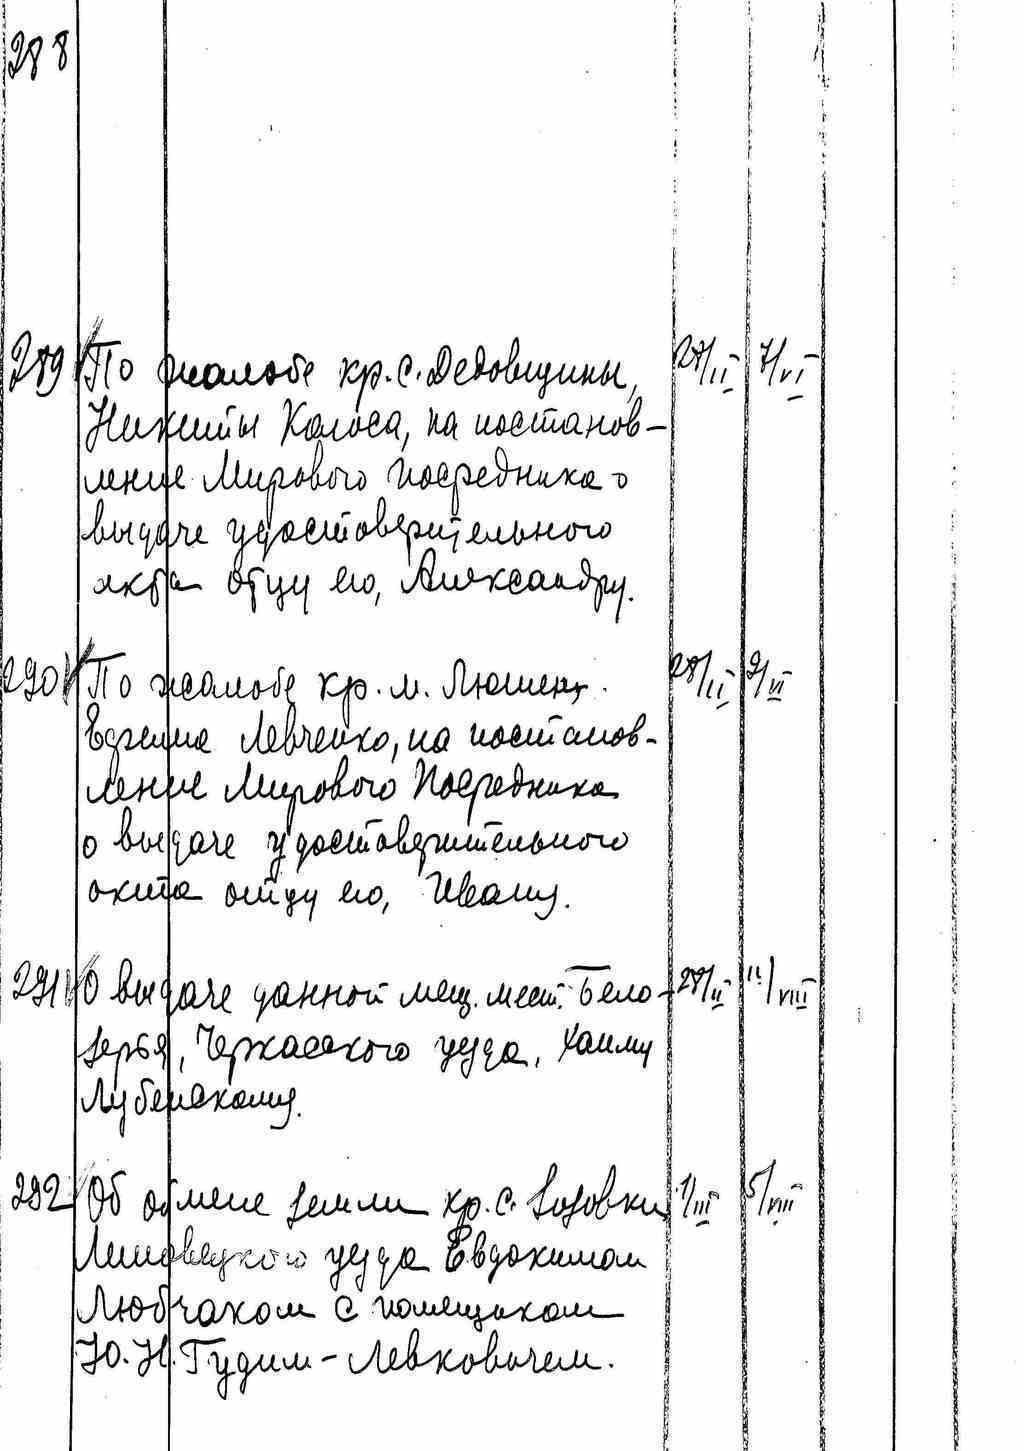 288
289 По жалобе кр. с. Дедовщины, 28/II 7/VI
Никиты Колоса, на постанов-
ление Мирового Посредника о
выдаче удостоверительного
акта отцу его, Александру.
290 По жалобе кр. м. 28/II 9/VI
Левченко, на постанов-
ление Мирового Посредника
о выдаче удостоверительного
акта отцу его, Ивану.
291 О выдаче данной мещ. мест. Бело- 28/II 11/VIII
зерья, Черкасского уезда, Хаиму
Лубенскому.
292 Об обмене земли кр. с. 1/III 5/VIII
Липовецкого уезда Евдокимом
Любчаком с помещиком
Ю. Н. Гудим-Левковичем.